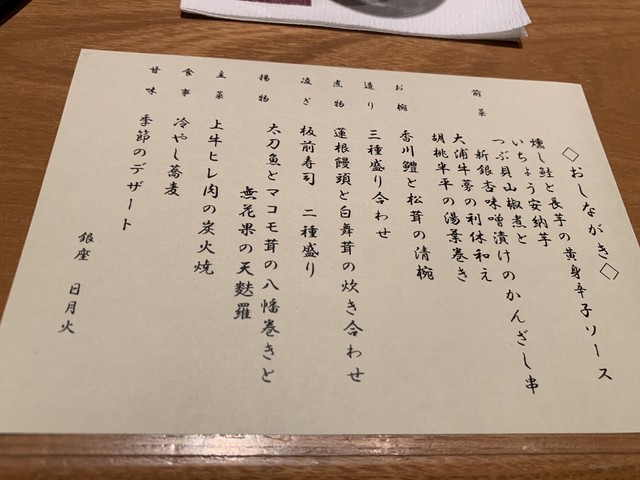 ◇おしながき◇
前菜
燻し鮭と長芋の黄身辛子ソース
いちょう安納芋
つぶ貝山椒煮と
新銀杏味噌漬けのかんざし串
大浦牛蒡の利休和え
胡桃半平の湯葉巻き
お椀
香川鱧と松茸の清椀
造り
三種盛り合わせ
煮物
蓮根饅頭と白舞茸の炊き合わせ
凌ぎ
板前寿司 二種盛り
揚物
太刀魚とマコモ茸の八幡巻きと
無花果の天麩羅
主菜
上牛ヒレ肉の炭火焼
食事
冷やし蕎麦
甘味
季節のデザート
銀座 日月火